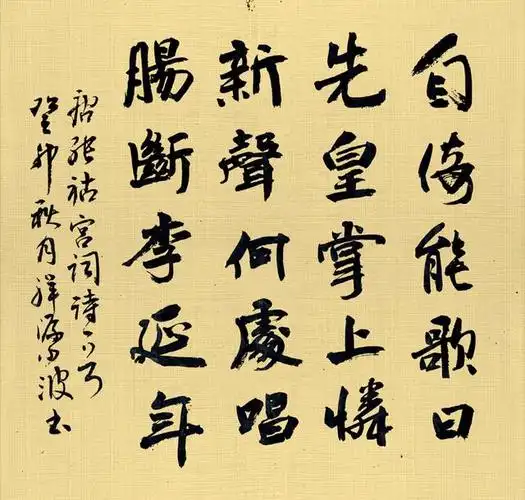 自倚能歌日
先皇掌上憐
新聲何處唱
腸斷李延年
唐張祜宮詞詩一首
癸卯秋月祥源小波书